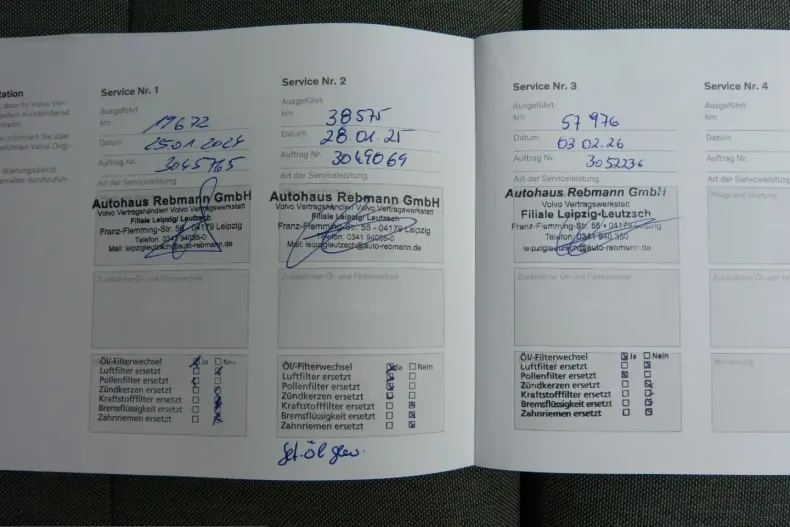 tation
dass Ihr Volvo Ver-
jedem Kundendienst
hreibt.
er informiert Sie über
geführten Volvo Origi-
Wartungsdienst
Service Nr. 1
Ausgeführt
km 19672
Datum 25 01 2024
Auftrag Nr. 3045765
Art der Serviceleistung
Autohaus Rebmann GmbH
Volvo Vertragshändler/ Volvo Vertragswerkstatt
Filiale Leipzig/ Leutzsch
Franz-Flemming-Str. 56 - 04179 Leipzig
Telefon: 0341 94085-0
Mail: leipzigleutzsch@auto-rebmann.de
Zusätzlicher Öl- und Filterwechsel
Öl/-Filterwechsel Ja Nein
Luftfilter ersetzt
Pollenfilter ersetzt
Zündkerzen ersetzt
Kraftstofffilter ersetzt
Bremsflüssigkeit ersetzt
Zahnriemen ersetzt
Service Nr. 2
Ausgeführt
km 38575
Datum 28 01. 25
Auftrag Nr. 3049069
Art der Serviceleistung
Autohaus Rebmann GmbH
Volvo Vertragshändler/ Volvo Vertragswerkstatt
Filiale Leipzig/ Leutzsch
Franz-Flemming-Str. 56 - 04179 Leipzig
Telefon: 0341 94085-0
Mail: leipzigleutzsch@auto-rebmann.de
Zusätzlicher Öl- und Filterwechsel
Öl/-Filterwechsel Ja Nein
Luftfilter ersetzt
Pollenfilter ersetzt
Zündkerzen ersetzt
Kraftstofffilter ersetzt
Bremsflüssigkeit ersetzt
Zahnriemen ersetzt
Service Nr. 3
Ausgeführt
km 57 976
Datum 03 02. 26
Auftrag Nr. 3052236
Art der Serviceleistung
Autohaus Rebmann GmbH
Volvo Vertragshändler/ Volvo Vertragswerkstatt
Filiale Leipzig-Leutzsch
Franz-Flemming-Str. 56 • 04179 Leipzig
Telefon: 0341 940 850
leipzigleutzsch@auto-rebmann.de
Zusätzlicher Öl- und Filterwechsel
Öl/-Filterwechsel Ja Nein
Luftfilter ersetzt
Pollenfilter ersetzt
Zündkerzen ersetzt
Kraftstofffilter ersetzt
Bremsflüssigkeit ersetzt
Zahnriemen ersetzt
Service Nr. 4
Ausgeführt
km
Datum
Auftrag Nr.
Art der Serviceleistung
Pflege und Wartung
Zusätzlicher Öl- und